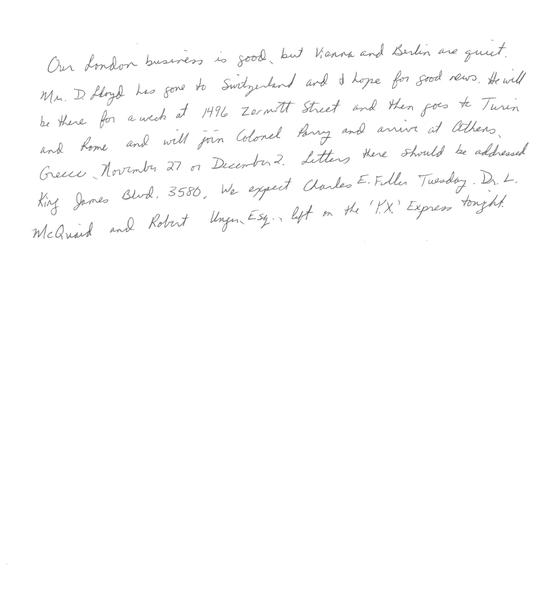 Our London business is good, but Vienna and Berlin are quiet.
Mr. D. Lloyd has gone to Switzerland and I hope for good news. He will
be there for a week at 1496 Zermott Street and then goes to Turin
and Rome and will join Colonel Parry and arrive at Athens,
Greece, November 27 or December 2. Letters there should be addressed
King James Blvd. 3580. We expect Charles E. Fuller Tuesday. Dr. L.
McQuaid and Robert Unger, Esq., left on the 'Y.X' Express tonight.